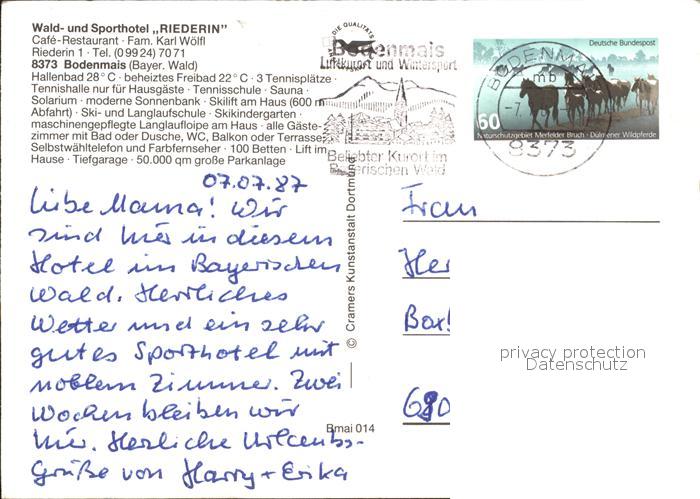 Wald- und Sporthotel „RIEDERIN"
Café-Restaurant · Fam. Karl Wölfl
Riederin 1 · Tel. (0 99 24) 70 71
8373 Bodenmais (Bayer. Wald)
Hallenbad 28° C · beheiztes Freibad 22° C · 3 Tennisplätze ·
Tennishalle nur für Hausgäste · Tennisschule · Sauna ·
Solarium · moderne Sonnenbank · Skilift am Haus (600 m
Abfahrt) · Ski- und Langlaufschule · Skikindergarten ·
maschinengepflegte Langlaufloipe am Haus · alle Gäste-
zimmer mit Bad oder Dusche, WC, Balkon oder Terrasse,
Selbstwähltelefon und Farbfernseher · 100 Betten · Lift im
Hause · Tiefgarage · 50.000 qm große Parkanlage
DIE QUALITÄTS
Bodenmais
Luftkurort und Wintersport
Beliebter Kurort im
Bayerischen Wald
BODENMAIS
mb
8373
Deutsche Bundespost
60
Naturschutzgebiet Merfelder Bruch · Dülmener Wildpferde
07.07.87
Liebe Mama! Wir
sind hier in diesem
Hotel im Bayerischen
Wald. Herrliches
Wetter und ein sehr
gutes Sporthotel mit
noblem Zimmer. Zwei
Wochen bleiben wir
hier. Herzliche Urlaubs-
Grüße von Harry + Erika
© Cramers Kunstanstalt Dortmund
Bmai 014
Frau
Her
Box
680
privacy protection
Datenschutz